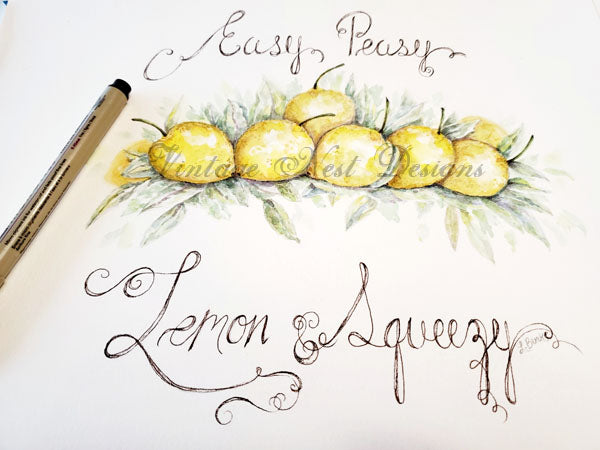 Easy Peasy
Vintage Nest Designs
Lemon & Squeezy